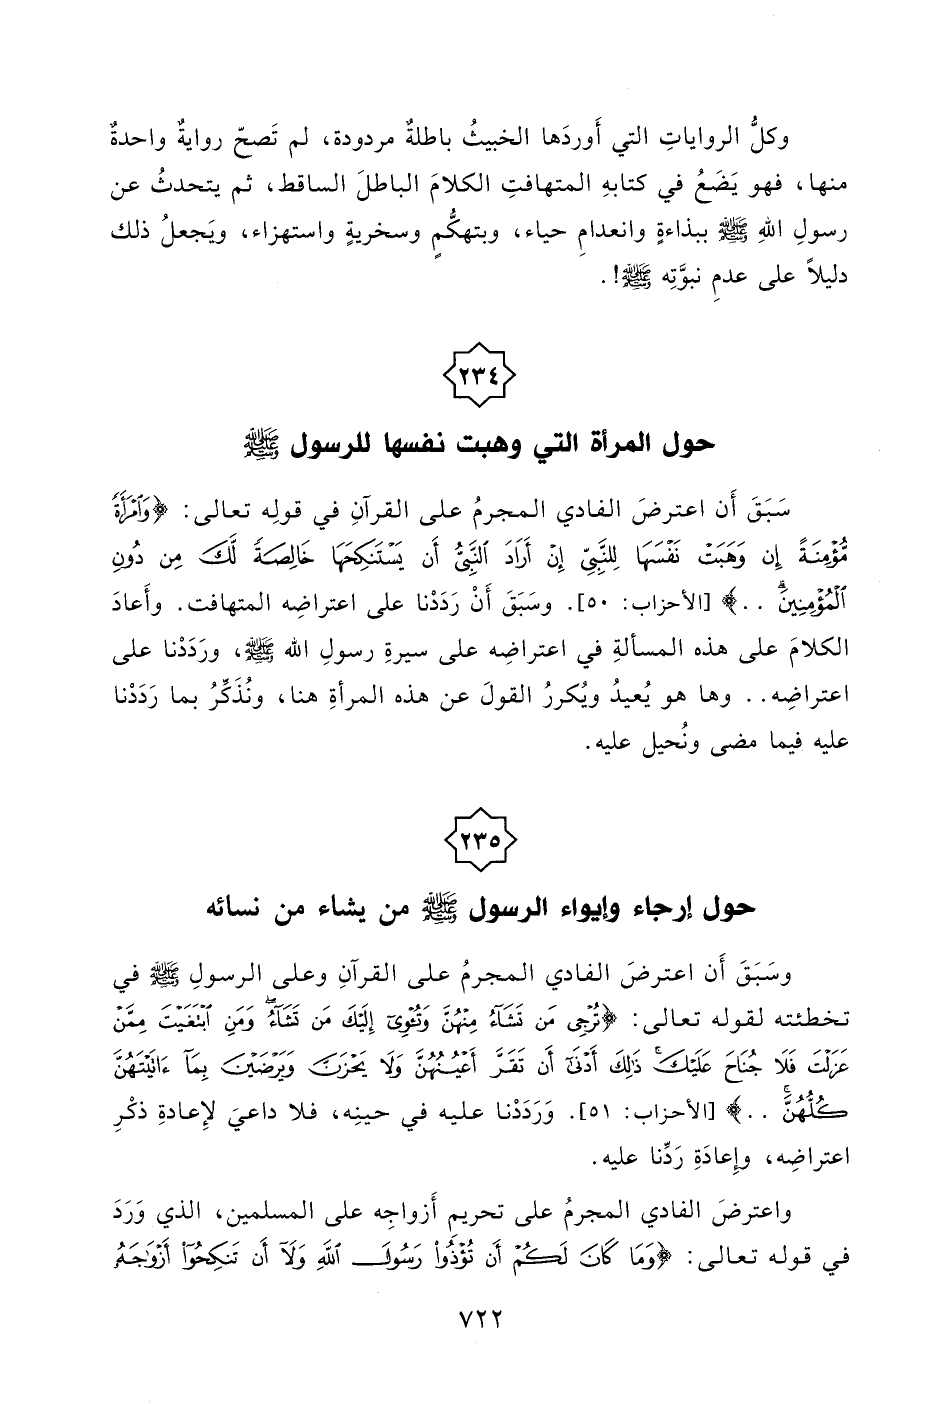 وكلُّ الرواياتِ التي أَوردَها الخبيثُ باطلةٌ مردودة، لم تَصحّ روايةٌ واحدةٌ
منها، فهو يَضَعُ في كتابهِ المتهافتِ الكلامَ الباطلَ الساقط، ثم يتحدثُ عن
رسولِ اللهِ ﷺ ببذاءةٍ وانعدامِ حياء، وبتهكُّمٍ وسخريةٍ واستهزاء، ويَجعلُ ذلك
دليلاً على عدمِ نبوَّتِه ﷺ!.
٢٣٤
حول المرأة التي وهبت نفسها للرسول ﷺ
سَبَقَ أَن اعترضَ الفادي المجرمُ على القرآنِ في قولِه تعالى: ﴿وَٱمْرَأَةً
مُّؤْمِنَةً إِن وَهَبَتْ نَفْسَهَا لِلنَّبِيِّ إِنْ أَرَادَ ٱلنَّبِيُّ أَن يَسْتَنكِحَهَا خَالِصَةً لَّكَ مِن دُونِ
ٱلْمُؤْمِنِينَۗ ..﴾ [الأحزاب: ٥٠]. وسَبَقَ أَنْ رَدَدْنا على اعتراضِه المتهافت. وأَعادَ
الكلامَ على هذه المسألةِ في اعتراضِه على سيرةِ رسولِ الله ﷺ، ورَدَدْنا على
اعتراضِه.. وها هو يُعيدُ ويُكررُ القولَ عن هذه المرأةِ هنا، ونُذَكِّرُ بما رَدَدْنا
عليه فيما مضى ونُحيل عليه.
٢٣٥
حول إرجاء وإيواء الرسول ﷺ من يشاء من نسائه
وسَبَقَ أَن اعترضَ الفادي المجرمُ على القرآنِ وعلى الرسولِ ﷺ في
تخطئته لقوله تعالى: ﴿تُرْجِى مَن تَشَآءُ مِنْهُنَّ وَتُـْٔوِىٓ إِلَيْكَ مَن تَشَآءُۖ وَمَنِ ٱبْتَغَيْتَ مِمَّنْ
عَزَلْتَ فَلَا جُنَاحَ عَلَيْكَۚ ذَٰلِكَ أَدْنَىٰٓ أَن تَقَرَّ أَعْيُنُهُنَّ وَلَا يَحْزَنَّ وَيَرْضَيْنَ بِمَآ ءَاتَيْتَهُنَّ
كُلُّهُنَّۚ ..﴾ [الأحزاب: ٥١]. وَرَدَدْنا عليه في حينِه، فلا داعيَ لإِعادةِ ذكْرِ
اعتراضِه، وإِعادَةِ رَدِّنا عليه.
واعترضَ الفادي المجرمُ على تحريمِ أَزواجِه على المسلمين، الذي وَرَدَ
في قوله تعالى: ﴿وَمَا كَانَ لَكُمْ أَن تُؤْذُوا۟ رَسُولَ ٱللَّهِ وَلَآ أَن تَنكِحُوٓا۟ أَزْوَٰجَهُۥ
٧٢٢